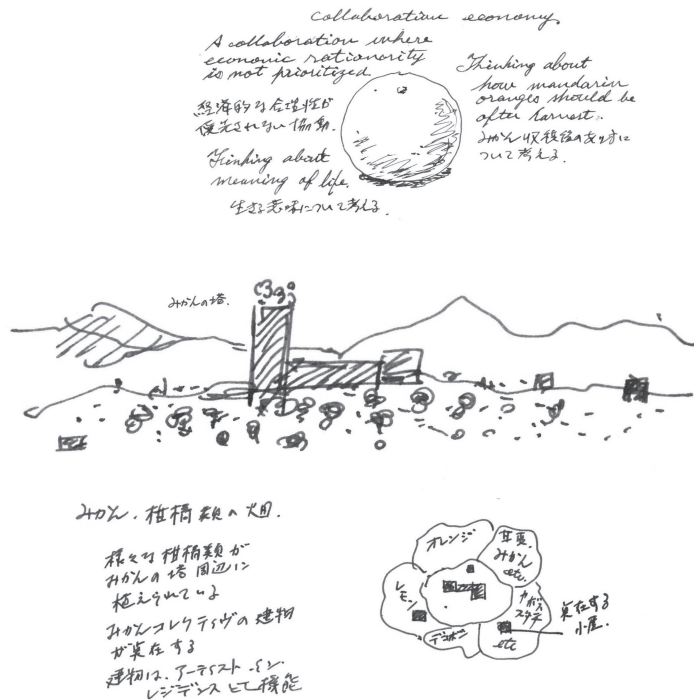 collaboration economy.
A collaboration where
economic rationarity
is not prioritized
経済的な合理性が
優先されない協動.
Thinking about
meaning of life.
生きる意味について考える.
Thinking about
how mandarin
oranges should be
after harvest.
みかん収穫後のあり方に
ついて考える.
みかんの塔.
みかん.柑橘類の畑.
様々な柑橘類が
みかんの塔周辺に
植えられている
みかんコレクティヴの建物
が点在する
建物は、アーティスト・イン・
レジデンスとして機能
オレンジ
甘夏.
みかん
etc.
レモン
カボス
スダチ
etc
デコポン
点在する
小屋.